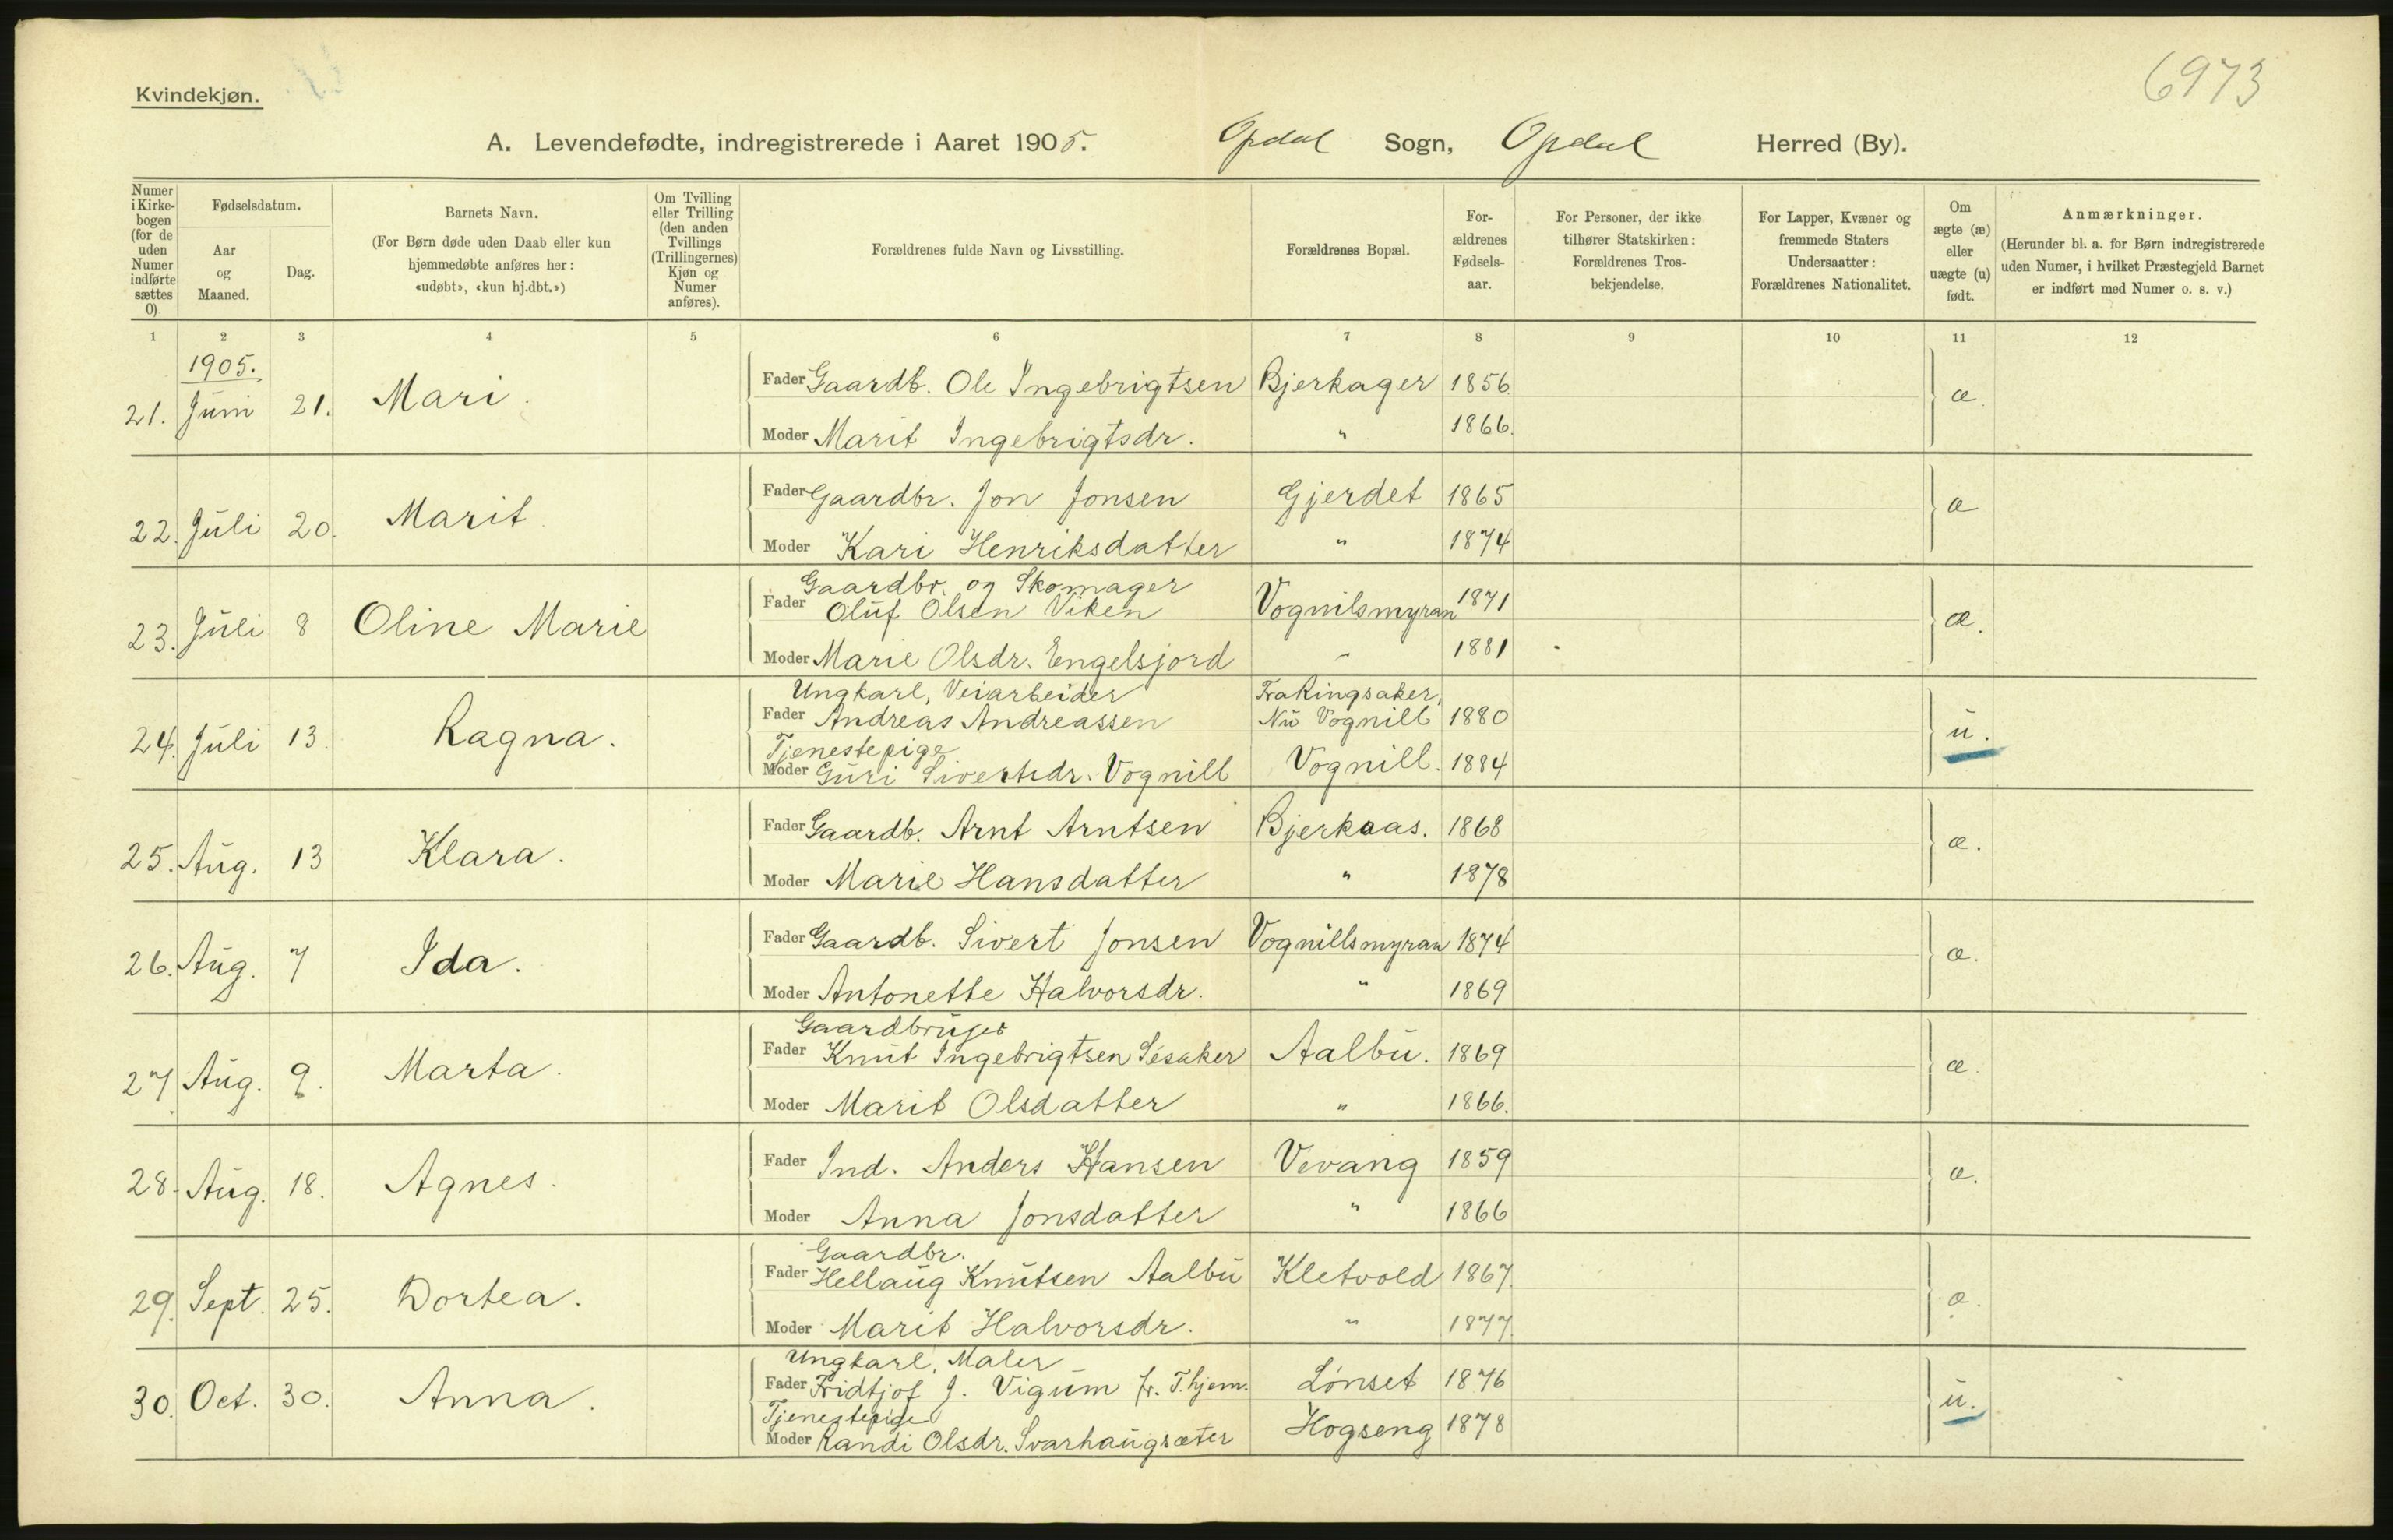 6973
Kvindekjøn.
A. Levendefødte, indregistrerede i Aaret 1905. Opdal Sogn, Opdal Herred (By).
Numer i Kirke-bogen (for de uden Numer indførte sættes 0)
Fødselsdatum.
Aar og Maaned.
Dag.
Barnets Navn.
(For Børn døde uden Daab eller kun hjemmedøbte anføres her: «udøbt», «kun hj.dbt.»)
Om Tvilling eller Trilling (den anden Tvillings (Trillingernes) Kjøn og Numer anføres).
Forældrenes fulde Navn og Livsstilling.
Forældrenes Bopæl.
For-ældrenes Fødsels-aar.
For Personer, der ikke tilhører Statskirken: Forældrenes Tros-bekjendelse.
For Lapper, Kvæner og fremmede Staters Undersaatter: Forældrenes Nationalitet.
Om ægte (æ) eller uægte (u) født.
Anmærkninger.
(Herunder bl. a. for Børn indregistrerede uden Numer, i hvilket Præstegjeld Barnet er indført med Numer o. s. v.)
1 2 3 4 5 6 7 8 9 10 11 12
1905.
21. Juni 21. Mari. Fader Gaardb. Ole Ingebrigtsen Bjerkager 1856 æ.
Moder Marit Ingebrigtsdr. " 1866.
22. Juli 20. Marit Fader Gaardbr. Jon Jonsen Gjerdet 1865 æ
Moder Kari Henriksdatter " 1874
Gaardbr. og Skomager
23. Juli 8 Oline Marie Fader Oluf Olsen Viken Vognilsmyran 1871 æ.
Moder Marie Olsdr. Engelsjord " 1881
Ungkarl, Veiarbeider Fra Ringsaker,
24. Juli 13. Ragna. Fader Andreas Andreassen Nu Vognill 1880 u.
Tjenestepige
Moder Guri Sivertsdr. Vognill Vognill. 1884
25. Aug. 13 Klara. Fader Gaardb. Arnt Arntsen Bjerkaas. 1868 æ.
Moder Marie Hansdatter " 1878
26. Aug. 7 Ida. Fader Gaardb. Sivert Jonsen Vognillsmyran 1874 æ.
Moder Antonette Halvorsdr. " 1869
Gaardbruger
27. Aug. 9. Marta. Fader Knut Ingebrigtsen Aalbu. 1869 æ.
Moder Marit Olsdatter " 1866.
28. Aug. 18. Agnes. Fader Ind. Anders Hansen Vevang 1859 æ.
Moder Anna Jonsdatter " 1866
Gaardbr.
29. Sept. 25. Dortea. Fader Hellaug Knutsen Aalbu Kletvold 1867. æ.
Moder Marit Halvorsdr. " 1877.
Ungkarl, Maler
30. Oct. 30. Anna. Fader Fridtjof J. Vigum fr. T.hjem. Lønset 1876 u.
Tjenestepige
Moder Randi Olsdr. Svarhaugsæter Hogseng 1878